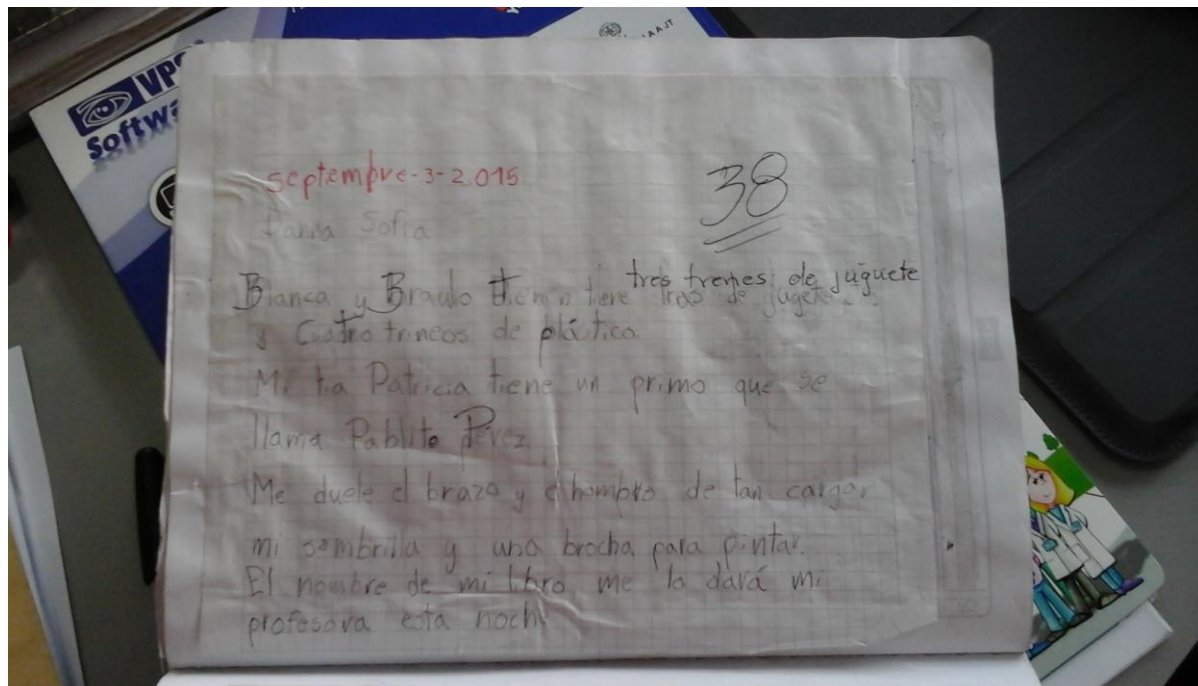 VPS
Software
septembre-3-2015
38
Sofia
tres trenes de juguete
Blanca y Braulo tienen tiene tras de jugete
y Cuatro trineos de plástico.
Mi tia Patricia tiene un primo que se
llama Pablito Pérez.
Me duele el brazo y el hombro de tan cargar
mi sombrilla y una brocha para pintar.
El nombre de mi libro me lo dará mi
profesora esta noche